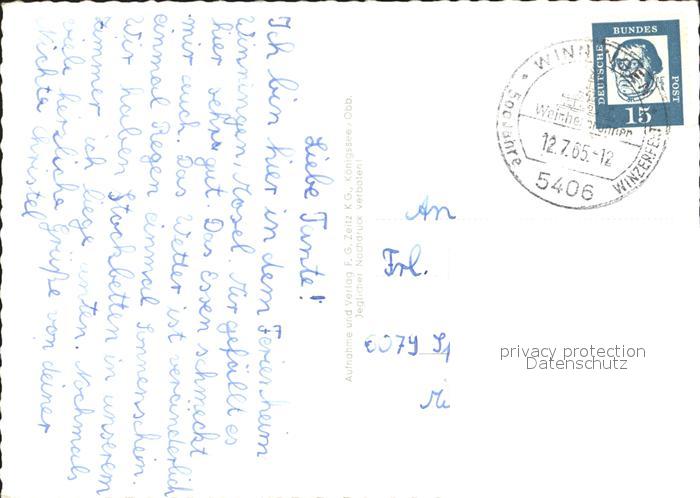 Liebe Tante!
Ich bin hier in dem Ferienheim
Winningen, Mosel. Mir gefällt es
hier sehr gut. Das Essen schmeckt
mir auch. Das Wetter ist veränderlich
einmal Regen einmal Sonnenschein.
Wir haben Stockbetten in unserem
Zimmer ich liege unten. Nochmals
viele herzliche Grüße von deiner
Nichte Christel
Aufnahme und Verlag F. G. Zeitz KG., Königssee - Obb.
Jeglicher Nachdruck verboten!
DEUTSCHE
BUNDES
POST
15
WINNINGEN
12.7.65.-12
500 Jahre
WINZERFEST
5406
An
Frl.
privacy protection
Datenschutz